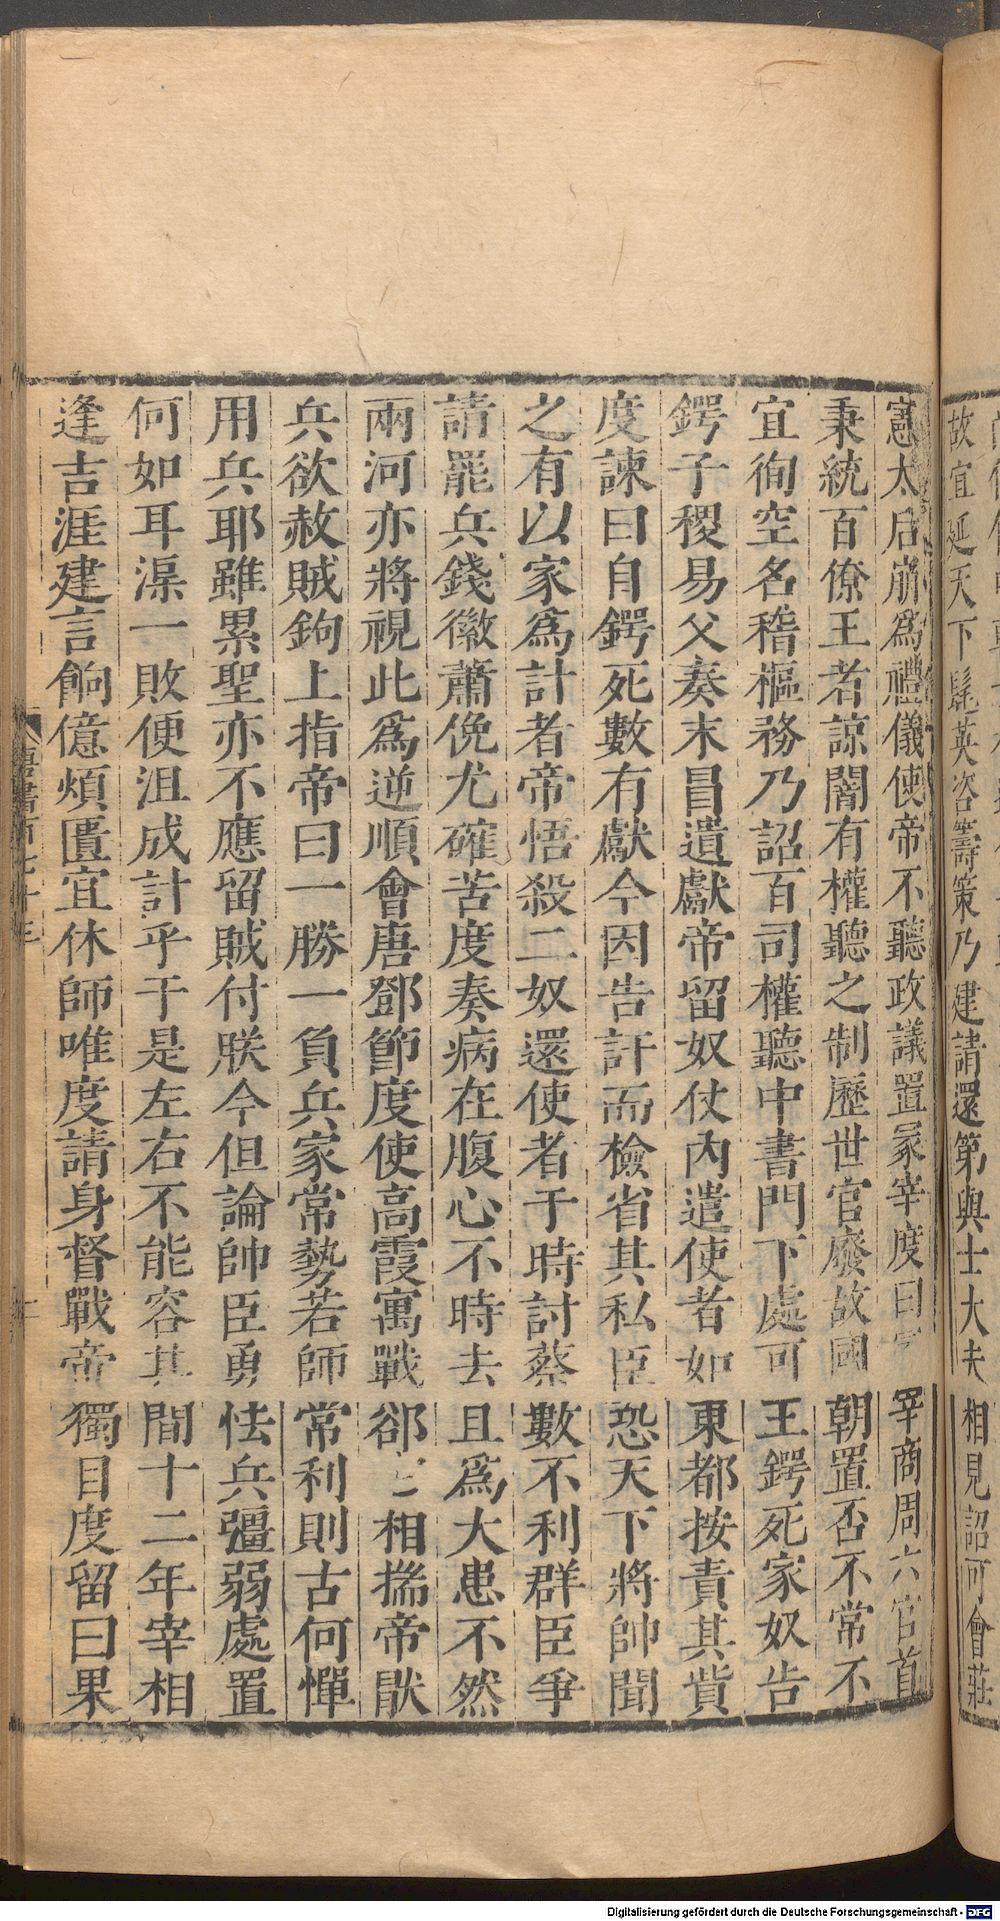 故宜延天下髦英咨籌策乃建請還第與士大夫相見詔可會莊
憲太后崩爲禮儀使帝不聽政議置冢宰度曰冢宰商周六官首
秉統百僚王者諒闇有權聽之制歷世官廢故國朝置否不常不
宜徇空名稽樞務乃詔百司權聽中書門下處可王鍔死家奴告
鍔子稷易父奏末冒遺獻帝留奴仗內遣使者如東都按責其貲
度諫曰自鍔死數有獻今因告訐而檢省其私臣恐天下將帥聞
之有以家爲計者帝悟殺二奴還使者于時討蔡數不利群臣爭
請罷兵錢徽蕭俛尤確苦度奏病在腹心不時去且爲大患不然
兩河亦將視此爲逆順會唐鄧節度使高霞寓戰郤它相揣帝厭
兵欲赦賊鉤上指帝曰一勝一負兵家常勢若師常利則古何憚
用兵耶雖累聖亦不應留賊付朕今但論帥臣勇怯兵彊弱處置
何如耳渠一敗便沮成計乎于是左右不能容其間十二年宰相
逢吉涯建言餉億煩匱宜休師唯度請身督戰帝獨目度留曰果
唐書百七十三
Digitalisierung gefördert durch die Deutsche Forschungsgemeinschaft - DFG